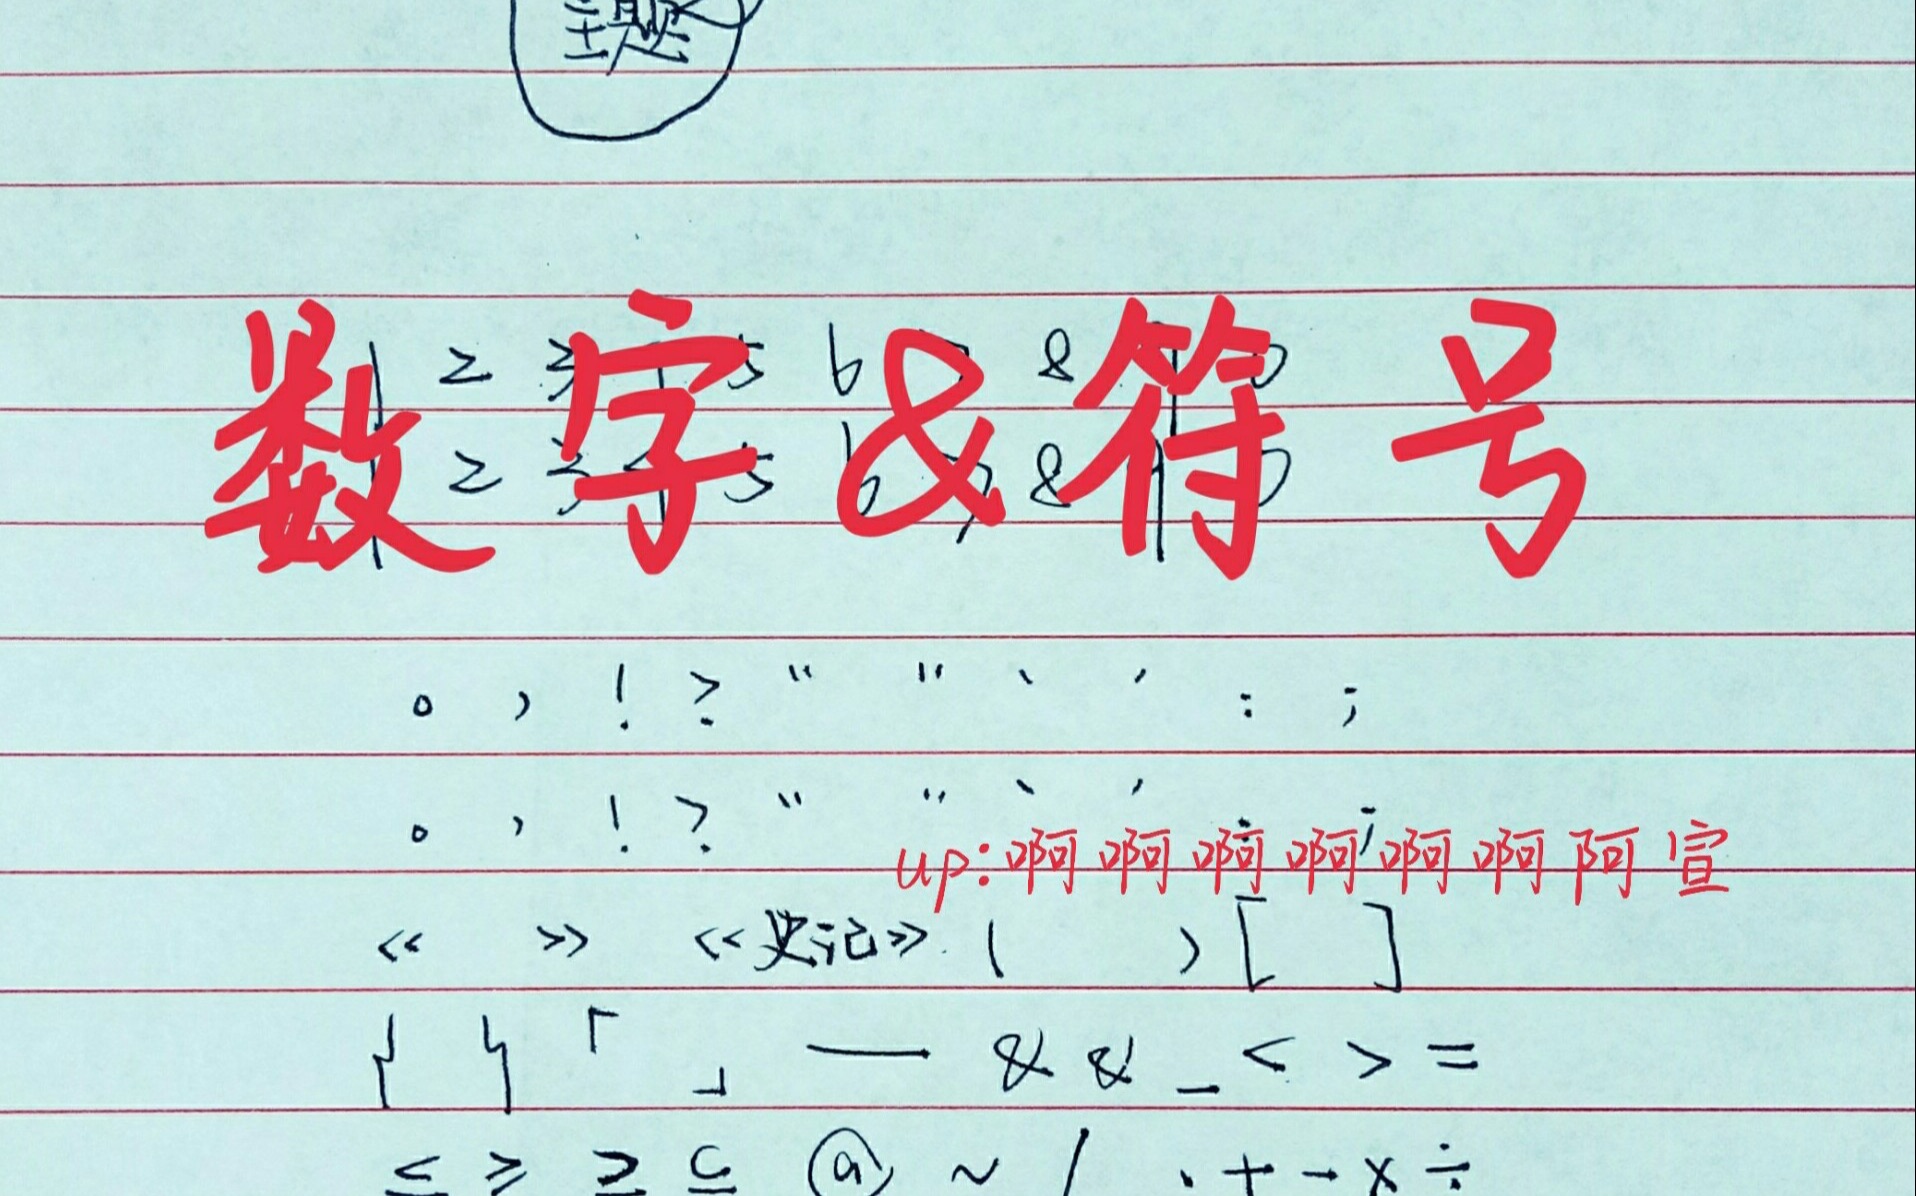 主题
数字&符号
1 2 3 4 5 6 7 8 9 0
1 2 3 4 5 6 7 8 9 0
。 , ! ? “ ” ‘ ’ : ;
。 , ! ? “ ” ‘ ’ : ;
up:啊啊啊啊啊啊阿宣
《 》 《史记》 ( ) [ ]
{ } 「 」 — & & _ < > =
≤ ≥ ⊇ ⊆ @ ~ / · + - × ÷